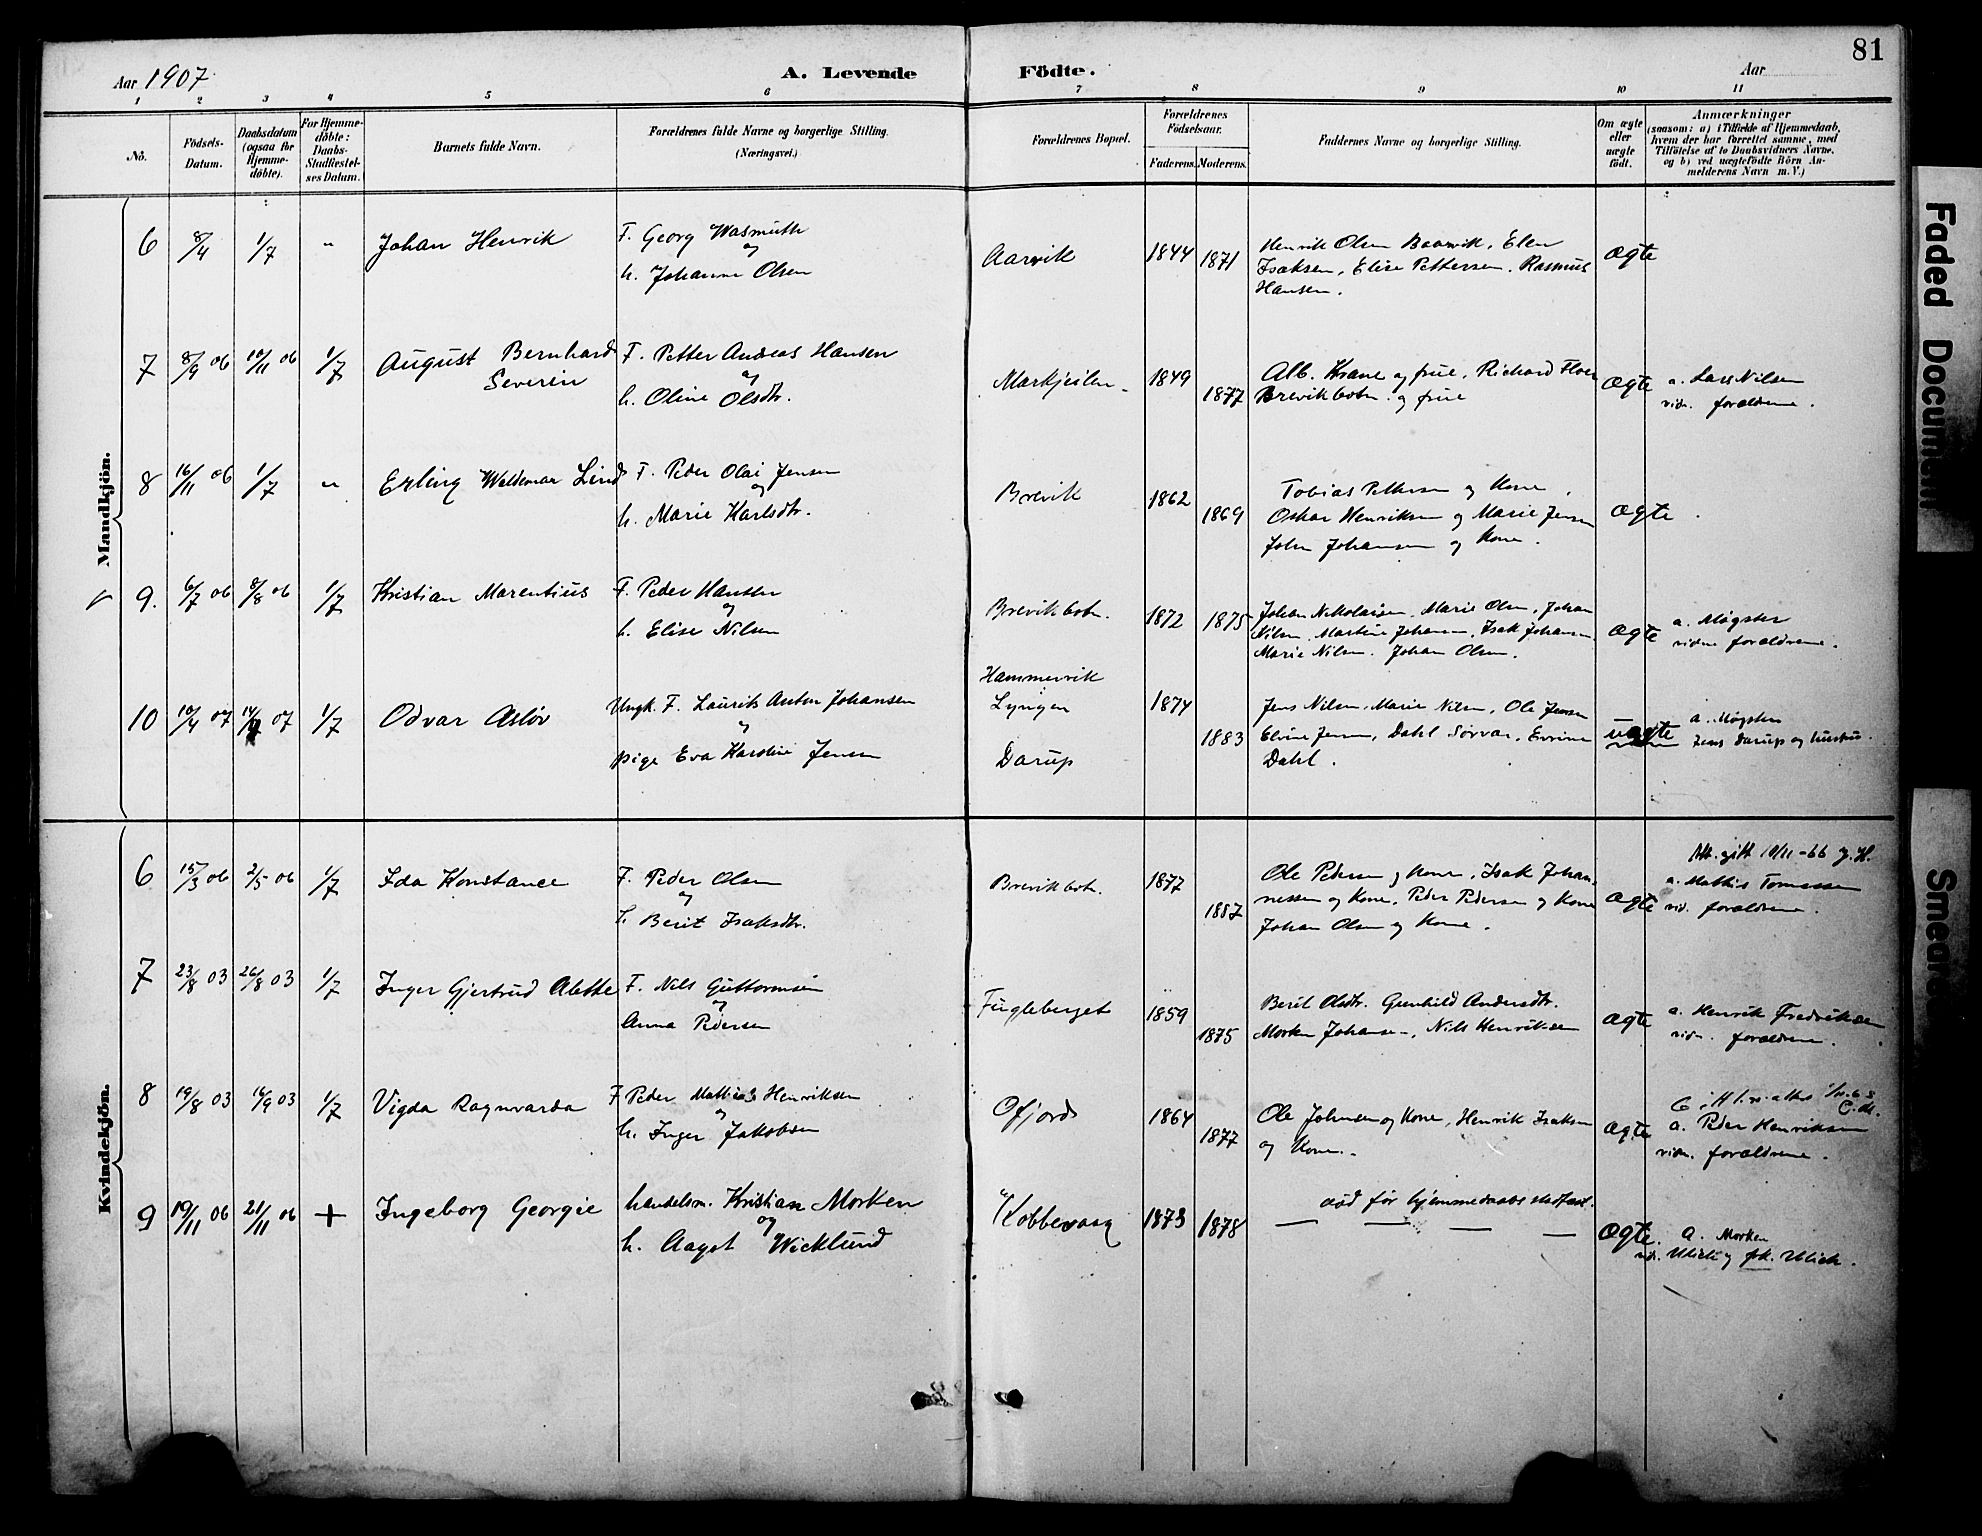 81
Aar 1907.
A. Levende Födte.
Aar
1 2 3 4 5 6 7 8 9 10 11
No.
Födsels-Datum.
Daabsdatum (ogsaa for Hjemme-døbte).
For Hjemme-døbte: Daabs-Stadfæstel-ses Datum.
Barnets fulde Navn.
Forældrenes fulde Navne og borgerlige Stilling. (Næringsvei.)
Forældrenes Bopæl.
Forældrenes Födselsaar.
Faderens. Moderens.
Faddernes Navne og borgerlige Stilling.
Om ægte eller uægte født.
Anmærkninger
(saasom: a) i Tilfælde af Hjemmedaab, hvem der har forrettet samme, med Tilföielse af to Daabsvidners Navne, og b) ved uægtefödte Börn An-melderens Navn m. V.)
Mandkjön.
6 8/4 1/7 " Johan Henrik F. Georg Wasmuth
og
h. Johanne Olsen
Aarvik 1844 1871
Henrik Olsen Baarvik, Elen
Isaksen, Elise Pettersen. Rasmus
Hansen.
ægte
7 8/9 06 10/11 06 1/7 August Bernhard
Severin
F. Petter Andreas Hansen
og
h. Oline Olsdtr.
1849 1877
Alb. Krane og frue, Richard
Brevikbotn og frue
ægte
a. Lars Nilsen
vidn. forældrene.
8 16/11 06 1/7 " Erling Waldemar Lind
F. Peder Olai Jensen
og
h. Marie Karlsdtr.
Brevik 1862 1869
Tobias Pettersen og Kone,
Oskar Henriksen og Marie Jensen
John Johansen og Kone.
ægte
9. 6/7 06 8/8 06 1/7 Kristian Marentius
F. Peder Hansen
og
h. Elise Nilsen
Brevikbotn. 1872 1875
Johan Nikolaisen, Marie Olsen, Johan
Nilsen, Martine Johansen, Isak Johansen
Marie Nilsen. Johan Olsen.
ægte
a. Møgster
vidne forældrene.
10 10/4 07 07 1/7 Odvar Asløv
Ungk. F. Laurits Anton Johansen
og
pige Eva Karoline Jensen
Hammervik
Lyngen
Darup
1874 1883
Jens Nilsen, Marie Nilsen, Ole Jensen
Eline Jensen, Dahl Sørvær,
Dahl.
uægte
a. Møgster
Jens Darup og hustru.
Kvindekjön.
6 15/3 06 2/5 06 1/7 Ida Konstance
F. Peder Olsen
og
h. Berit Isaksdtr.
Brevikbotn. 1877 1887
Ole Pedersen og Kone, Isak Johan-
nessen og Kone, Peder Pedersen og Kone
Johan Olsen og Kone.
ægte
gift 10/11-66
a. Mathis Tomassen
vid. forældrene.
7 23/8 03 26/8 03 1/7 Inger Gjertrud Alette
F. Nils Guttormsen
og
Anna Pedersen
Fugleberget 1859 1875
Berit Olsdtr. Gunhild Andersdtr.
Morten Johansen, Nils Henriksen
ægte
a. Henrik Fredriksen
vidn. forældrene.
8 19/8 03 16/9 03 1/7 Vigda Ragnvarda
F Peder Mathias Henriksen
og
h. Inger Jakobsen
Ofjord 1864 1877
Ole Johnsen og Kone, Henrik Isaksen
og Kone.
ægte
a. Peder Henriksen
vidn. forældrene.
9 19/11 06 21/11 06 + Ingeborg Georgie
handelsm. Kristian Morken
og
h. Aagot Wicklund
Kobbevaag 1873 1878
død før hjemmedaabs stadfæst.
ægte.
a. Morken
vidn. Ulich og frk. Ulich.
Faded Document
Smeared